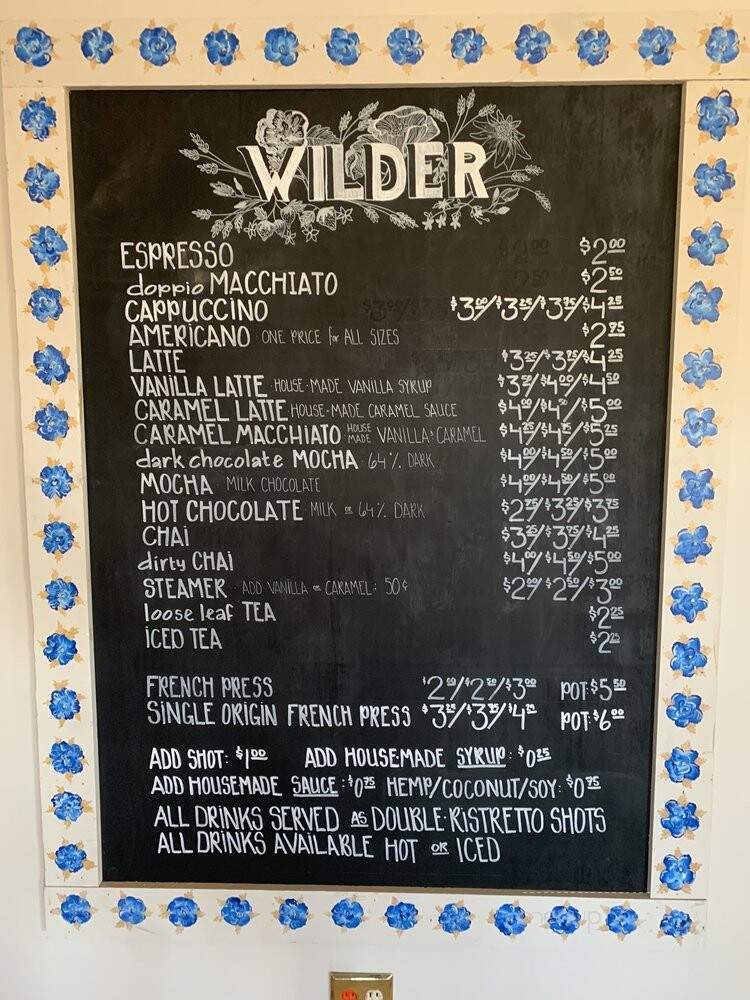 WILDER
ESPRESSO $2.00
doppio MACCHIATO $2.50
CAPPUCCINO $3.00/$3.25/$3.75/$4.25
AMERICANO · ONE PRICE for ALL SIZES $2.75
LATTE $3.25/$3.75/$4.25
VANILLA LATTE · HOUSE·MADE VANILLA SYRUP $3.50/$4.00/$4.50
CARAMEL LATTE · HOUSE·MADE CARAMEL SAUCE $4.00/$4.50/$5.00
CARAMEL MACCHIATO HOUSE MADE VANILLA & CARAMEL $4.25/$4.75/$5.25
dark chocolate MOCHA 64% DARK $4.00/$4.50/$5.00
MOCHA MILK CHOCOLATE $4.00/$4.50/$5.00
HOT CHOCOLATE MILK or 64% DARK $2.75/$3.25/$3.75
CHAI $3.25/$3.75/$4.25
dirty CHAI $4.00/$4.50/$5.00
STEAMER · ADD VANILLA or CARAMEL: 50¢ $2.00/$2.50/$3.00
loose leaf TEA $2.25
ICED TEA $2.25
FRENCH PRESS $2.00/$2.50/$3.00 POT: $5.50
SINGLE ORIGIN FRENCH PRESS $3.25/$3.75/$4.25 POT: $6.00
ADD SHOT: $1.00 ADD HOUSEMADE SYRUP: $0.25
ADD HOUSEMADE SAUCE: $0.75 HEMP/COCONUT/SOY: $0.75
ALL DRINKS SERVED AS DOUBLE·RISTRETTO SHOTS
ALL DRINKS AVAILABLE HOT OR ICED